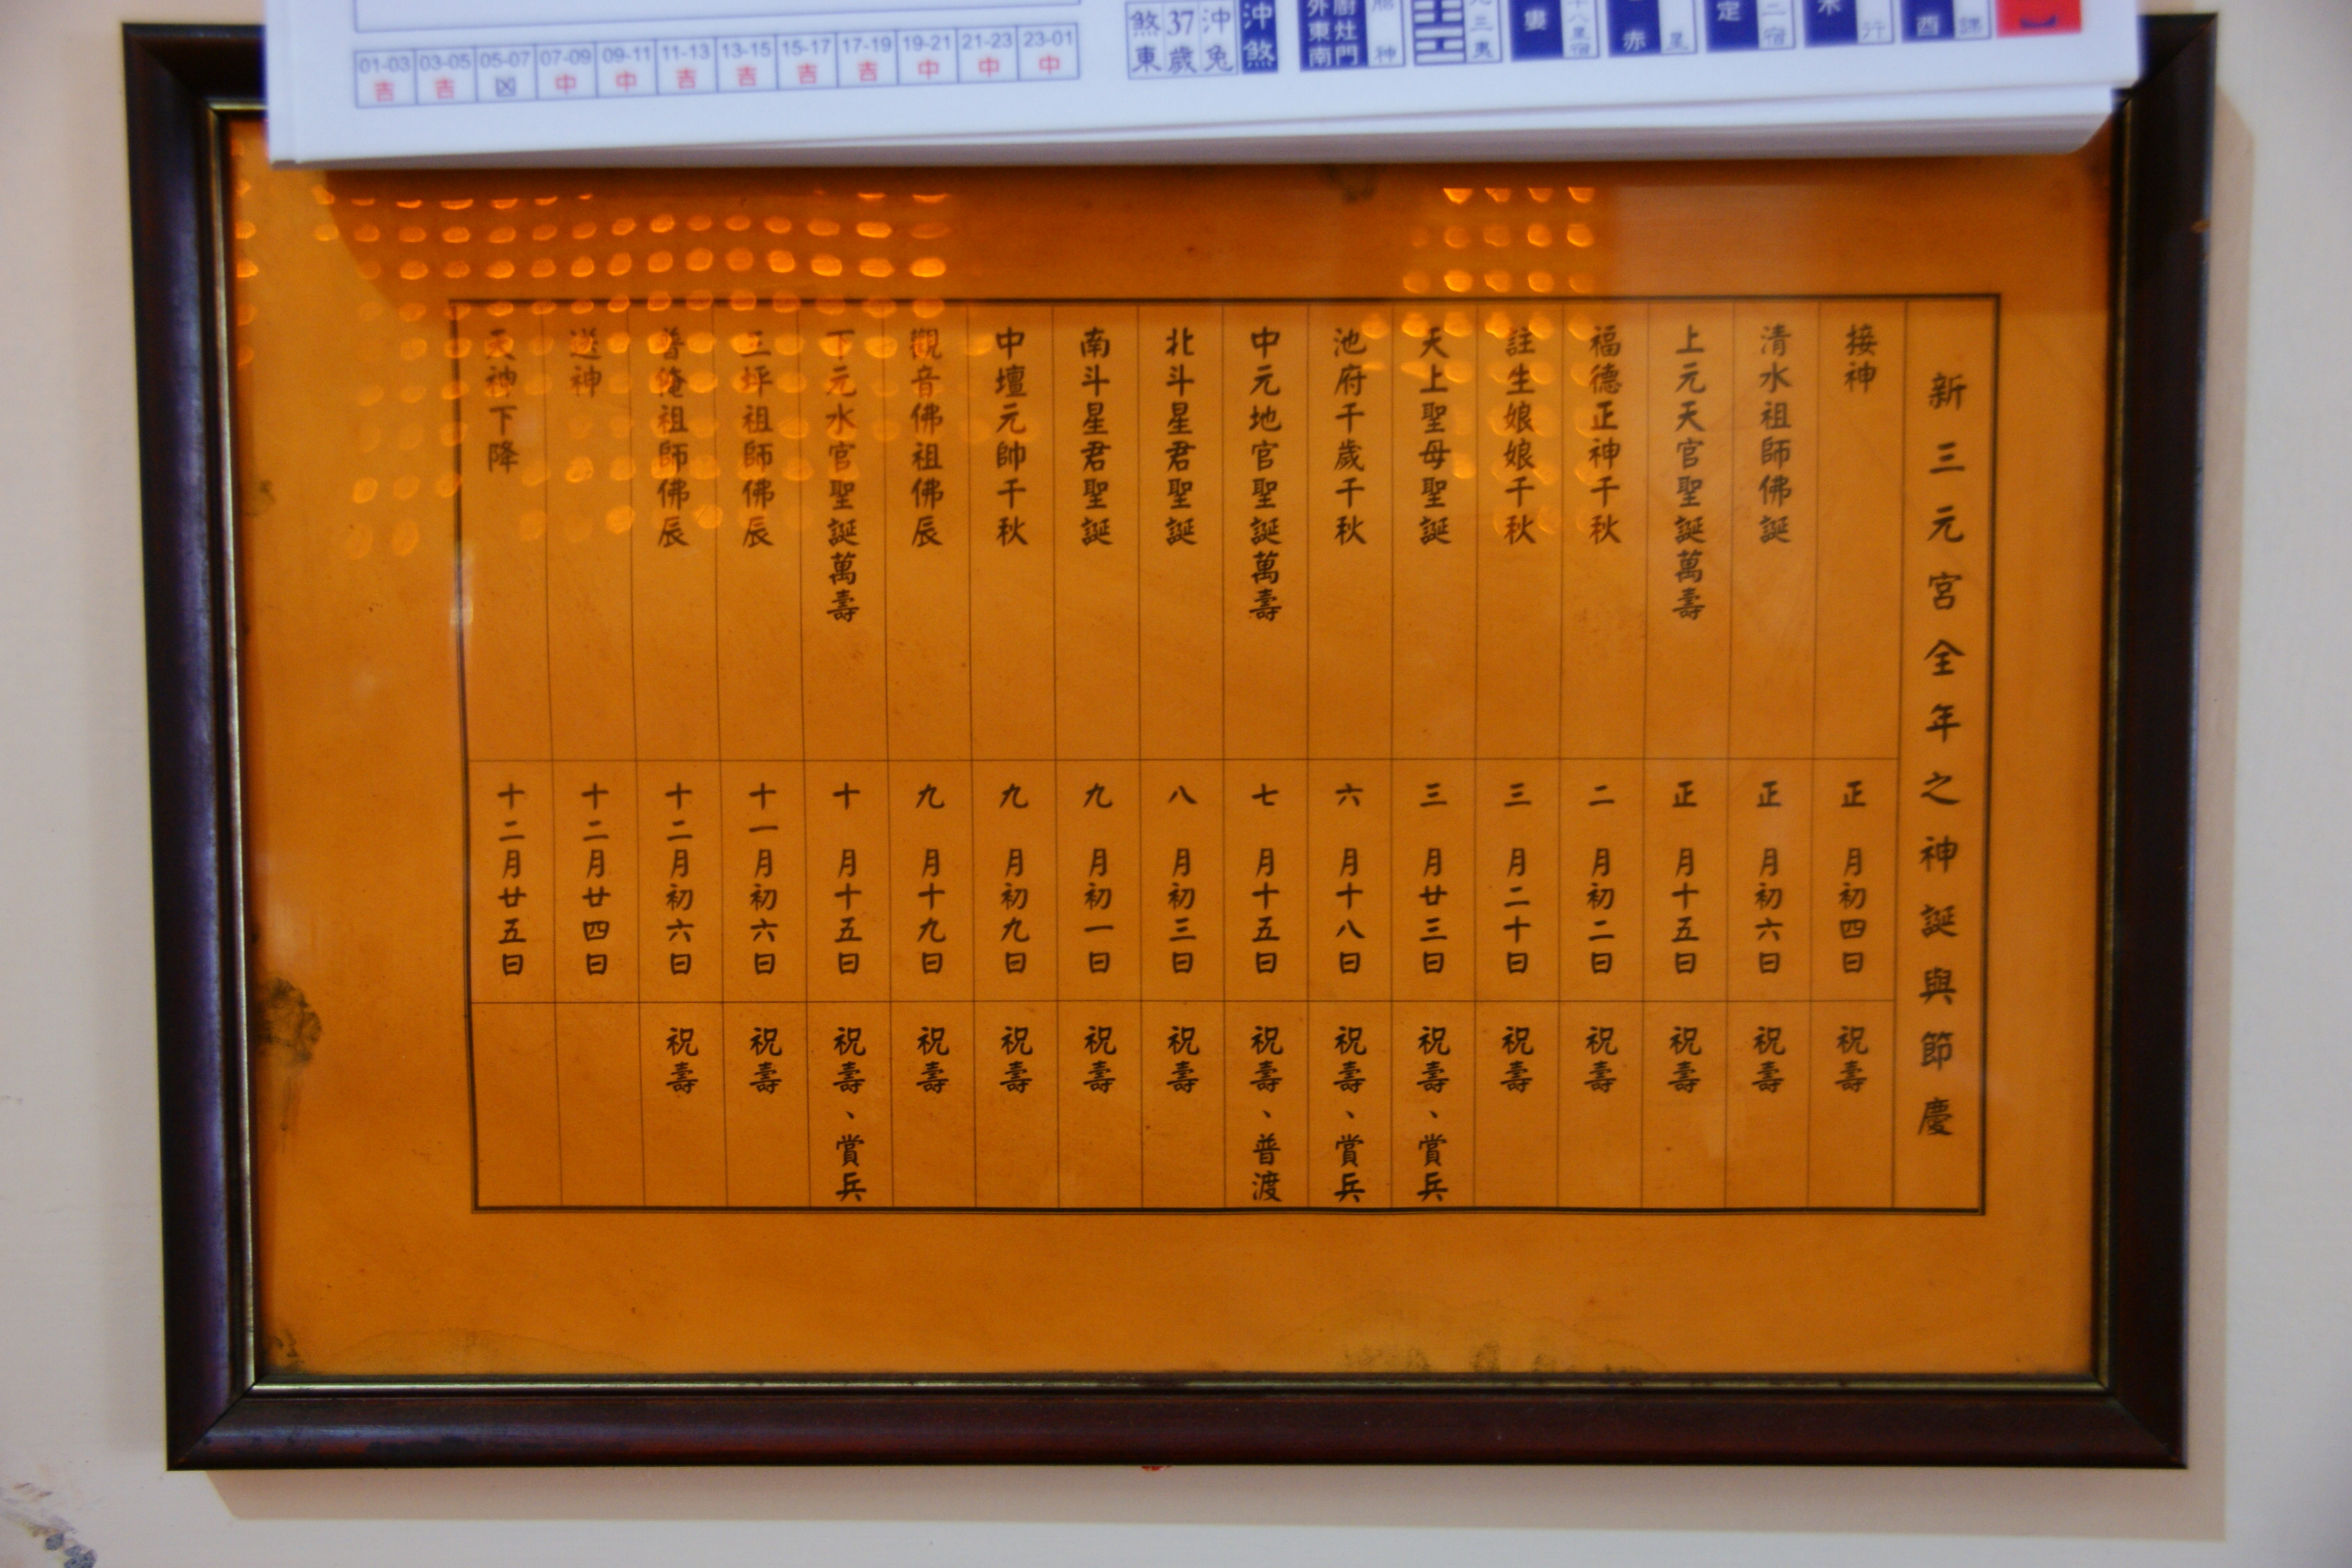 01-03 03-05 05-07 07-09 09-11 11-13 13-15 15-17 17-19 19-21 21-23 23-01
吉 吉 凶 中 中 吉 吉 吉 吉 中 中 中
沖煞
沖兔
37歲
煞東
廚灶門
外東南
神
婁
赤
定
酉
新三元宮全年之神誕與節慶
接神 正月初四日 祝壽
清水祖師佛誕 正月初六日 祝壽
上元天官聖誕萬壽 正月十五日 祝壽
福德正神千秋 二月初二日 祝壽
註生娘娘千秋 三月二十日 祝壽
天上聖母聖誕 三月廿三日 祝壽、賞兵
池府千歲千秋 六月十八日 祝壽、賞兵
中元地官聖誕萬壽 七月十五日 祝壽、普渡
北斗星君聖誕 八月初三日 祝壽
南斗星君聖誕 九月初一日 祝壽
中壇元帥千秋 九月初九日 祝壽
觀音佛祖佛辰 九月十九日 祝壽
下元水官聖誕萬壽 十月十五日 祝壽、賞兵
三坪祖師佛辰 十一月初六日 祝壽
普俺祖師佛辰 十二月初六日 祝壽
送神 十二月廿四日
天神下降 十二月廿五日